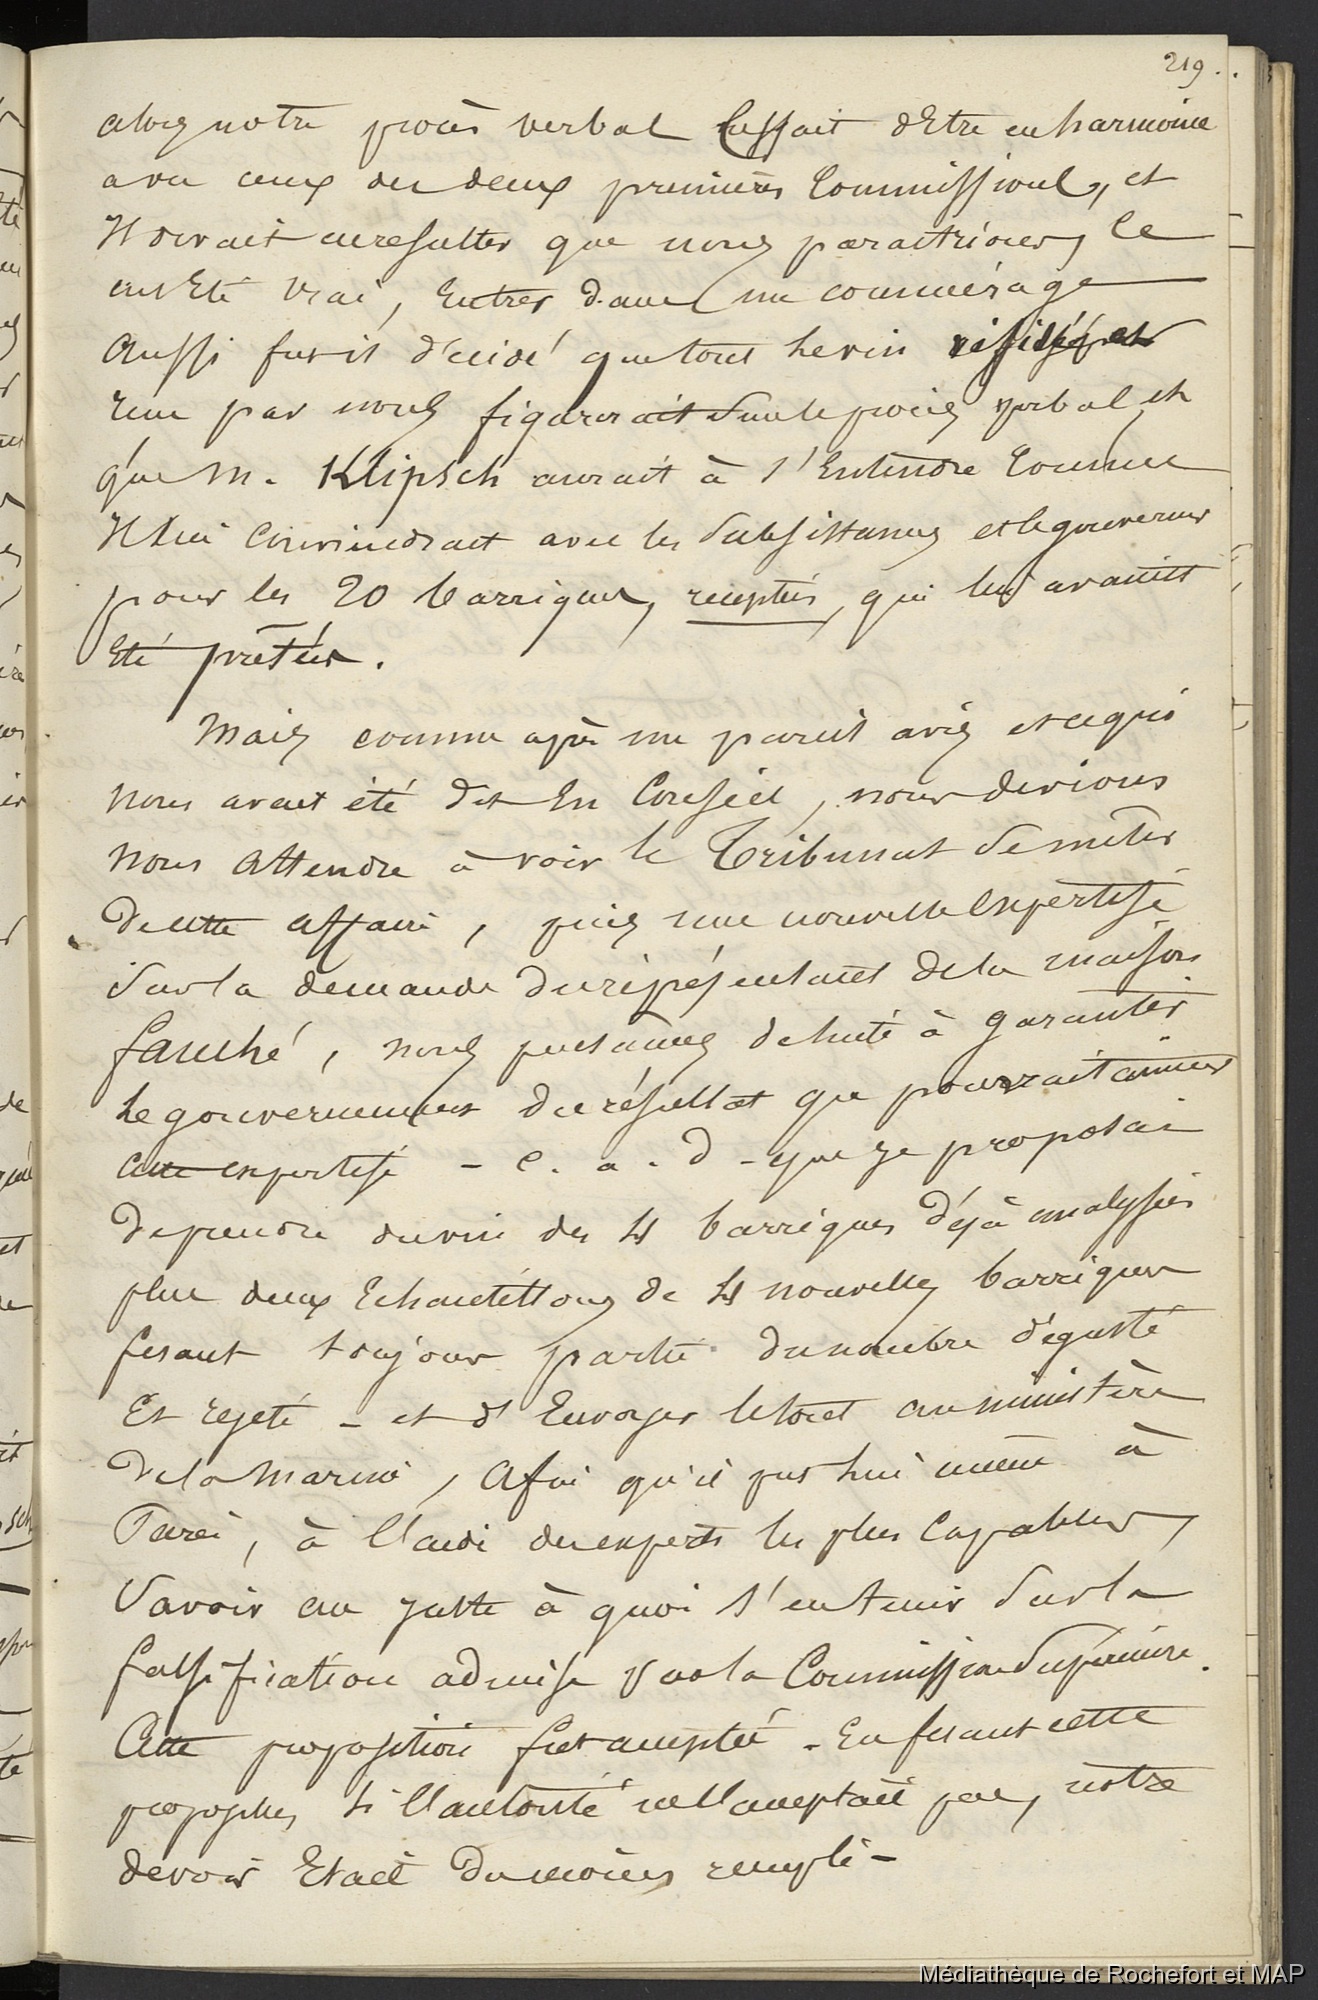 219.
alors notre procès verbal cessait d'Etre en harmonie
avec ceux des deux premières Commissions, et
Il devait en resulter que nous paraitrions, Ce
eut Eté vrai, Entrer dans un commérage
Aussi fut il décidé que tout le vin visité et
revu par nous figurerait sur le procès verbal, et
que M. Klipsch aurait à s'Entendre Comme
Il lui Conviendrait avec les Subsistances et le gouverneur
pour les 20 barriques, receptés, qui lui avaient
Eté prêtées.
Mais comme après un pareil avis et ce qui
nous avait été dit En Conseil, nous devions
nous attendre à voir le Tribunal se mêler
de cette affaire, puis une nouvelle Expertise
Sur la demande du réprésentant de la maison
fauché, nous pensames de suite à garantir
le gouvernement du résultat que pourrait amener
cette expertise - C. a. d - que je proposai
de prendre du vin des 4 barriques déjà analysées
plus deux Echantillons de 4 nouvelles barriques
fesant toujour partie du nombre dégusté
Et rejeté - et d'Envoyer le tout au ministère
de la Marine, Afin qu'il put lui même à
Paris, à l'aide des experts les plus Capables,
Savoir au juste à quoi s'en tenir Sur la
falsification admise par la Commission Supérieure.
Cette proposition fut acceptée - En fesant cette
si l'autorité ne l'acceptait pas, notre
devoir Etait du moins rempli -
Médiathèque de Rochefort et MAP